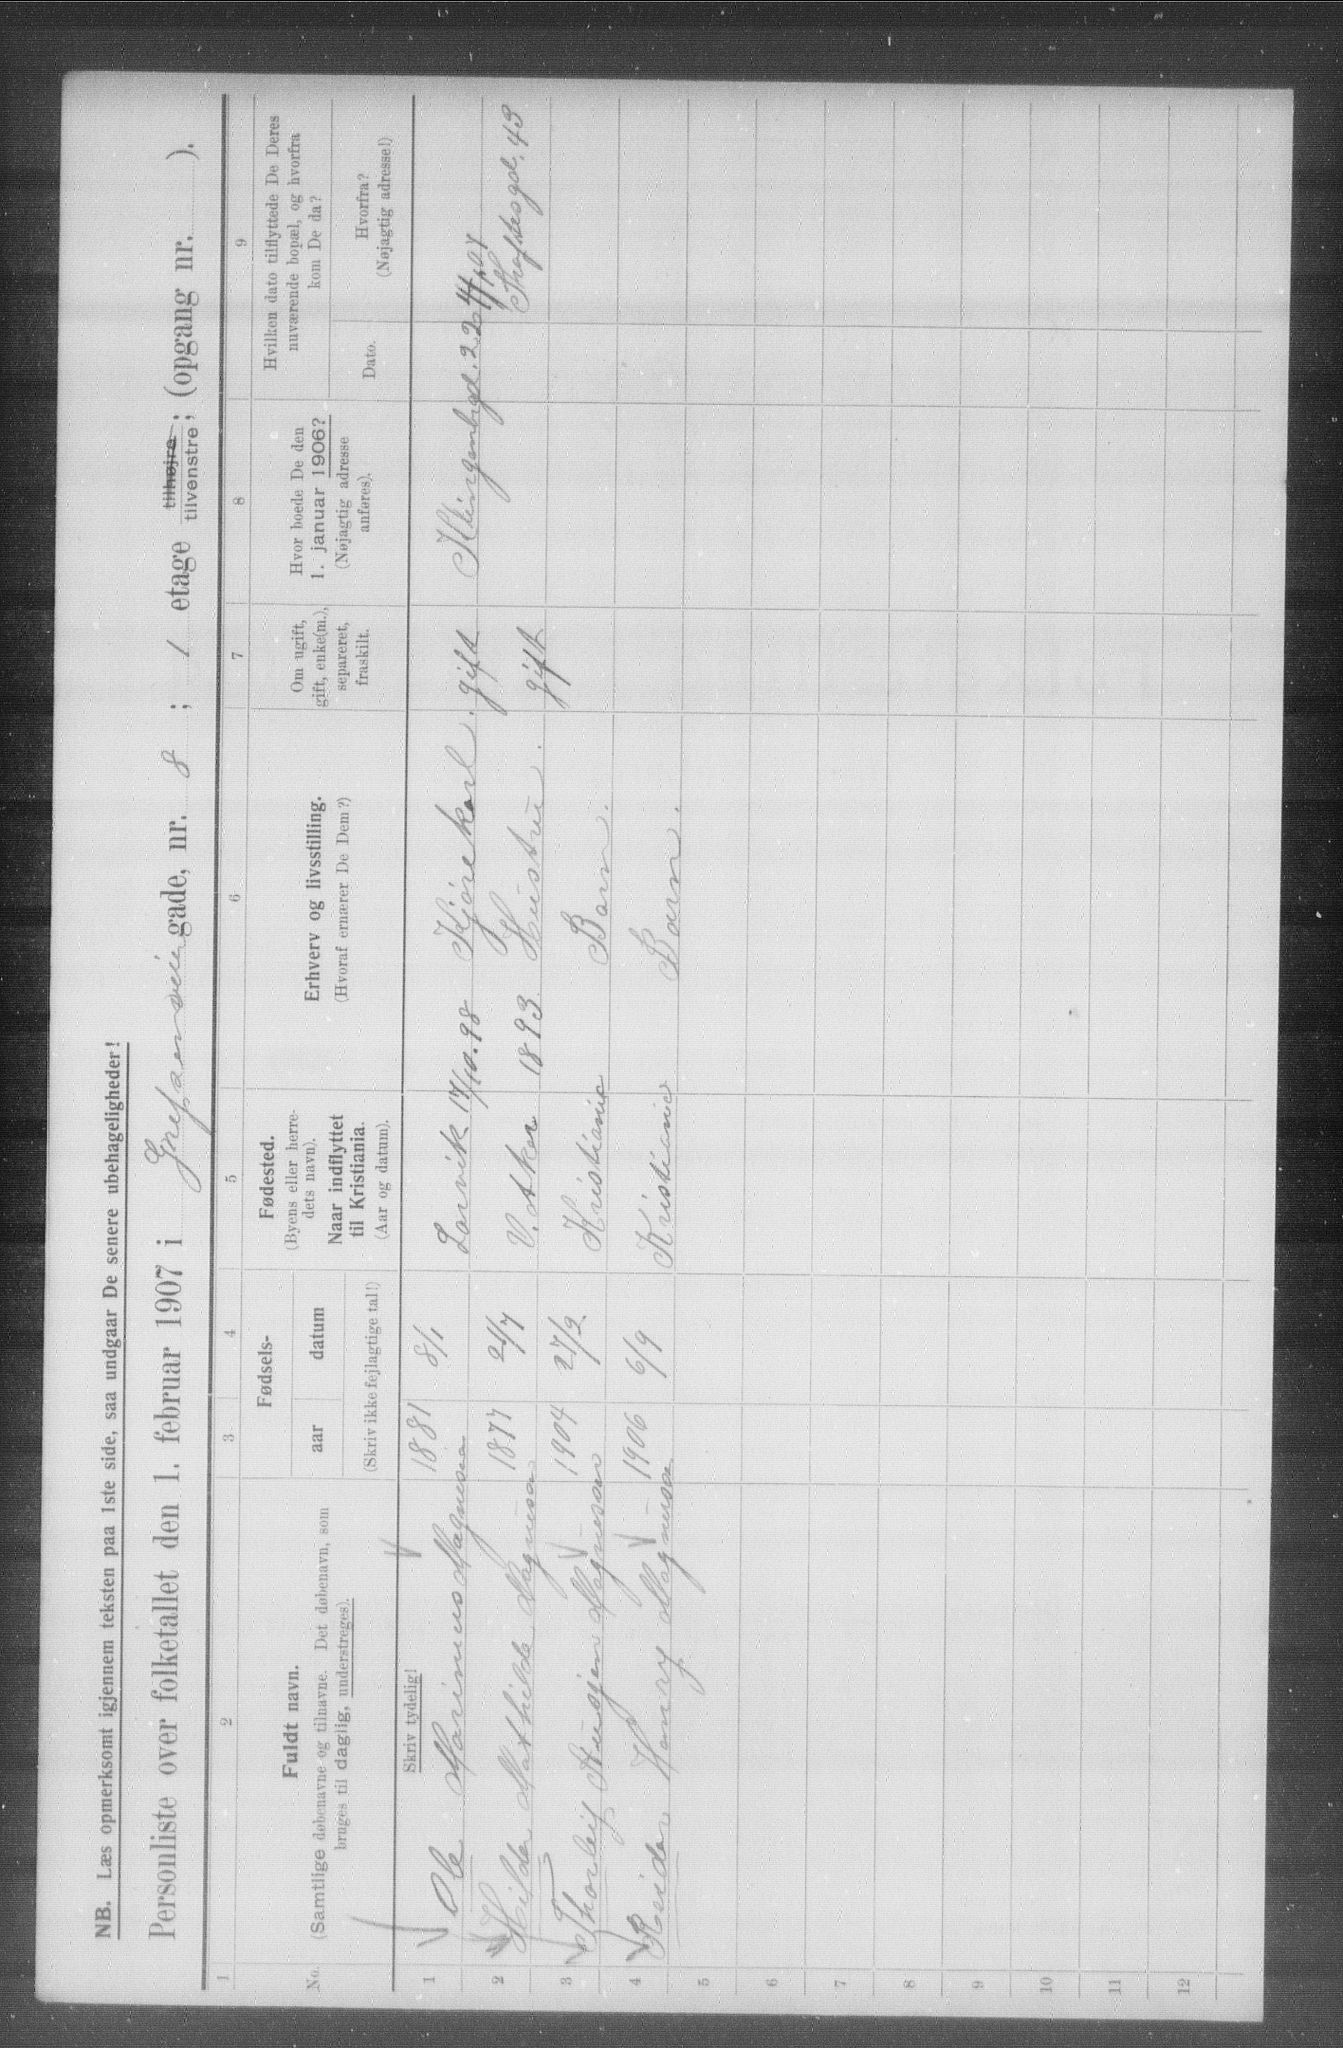 NB. Læs opmerksomt igjennem teksten paa 1ste side, saa undgaar De senere ubehageligheder!
Personliste over folketallet den 1. februar 1907 i Grefsenveien gade, nr. 8 ; 1 etage tilhøjre ; tilvenstre ; (opgang nr. ).
1 2 3 4 5 6 7 8 9
No.
Fuldt navn.
(Samtlige døbenavne og tilnavne. Det døbenavn, som
bruges til daglig, understreges).
Fødsels-
aar datum
(Skriv ikke fejlagtige tal!)
Fødested.
(Byens eller herre-
dets navn).
Naar indflyttet
til Kristiania.
(Aar og datum).
Erhverv og livsstilling.
(Hvoraf ernærer De Dem?)
Om ugift,
gift, enke(m.),
separeret,
fraskilt.
Hvor boede De den
1. januar 1906?
(Nøjagtig adresse
anføres).
Hvilken dato tilflyttede De Deres
nuværende bopæl, og hvorfra
kom De da?
Dato.
Hvorfra?
(Nøjagtig adresse!)
Skriv tydelig!
1 Ole Marinius Magnusen 1881 8/1 Larvik 17/10.98 Kjørekarl. gift Klingenbgd. 22
2 Hilda Mathilde Magnusen 1877 21/7 V. Aker 1893 Hustru. gift Toftesgd. 43
3 Thorleif Magnusen 1904 27/2 Kristiania Barn.
4 Reidar Henry Magnusen 1906 6/9 Kristiania Barn.
5
6
7
8
9
10
11
12